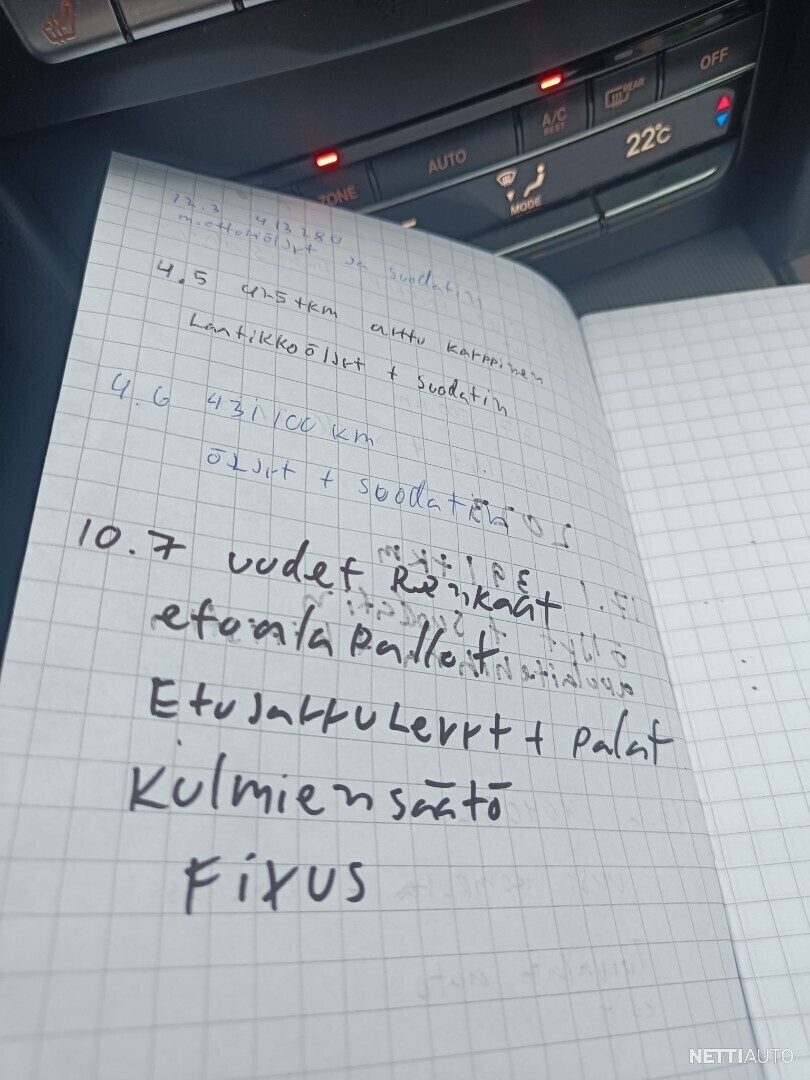 OFF
REAR
A/C
REST
AUTO
ZONE
22°C
MODE
22.3 413280
moottoriöljyt ja suodatin
4.5 425 tkm arttu karppinen
Laatikkoöljyt + suodatin
4.6 431100 km
öljyt + suodatin
10.7 uudet Renkaat
etualapallot
Etujarrulevyt + palat
Kulmien säätö
Fixus
NETTIAUTO